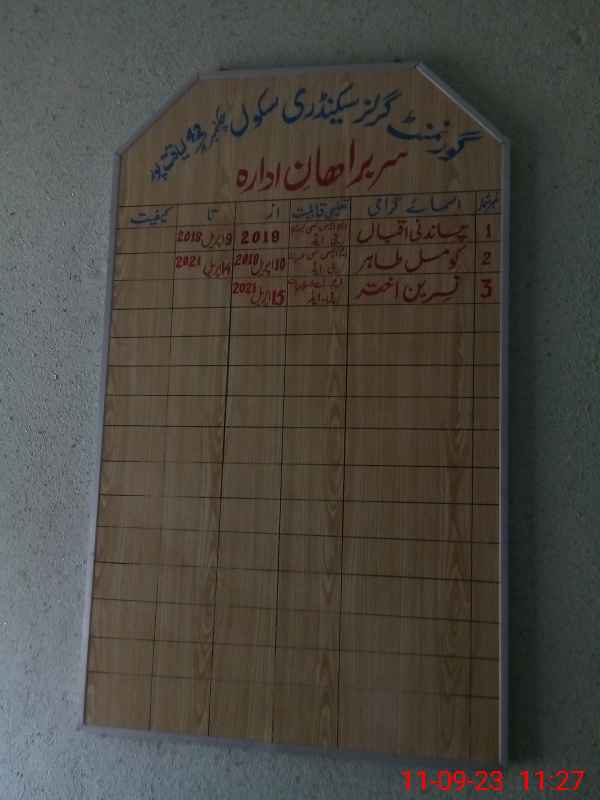 گورنمنٹ گرلز سیکنڈری سکول
سربراھانِ ادارہ
نمبرشمار اسمائے گرامی تعلیمی قابلیت از تا کیفیت
1 چاندنی اقبال 2019 9 اپریل 2019
2 کومل طاہر 10 اپریل 2019 14 اپریل 2021
3 نسرین اختر 15 اپریل 2021
11-09-23 11:27